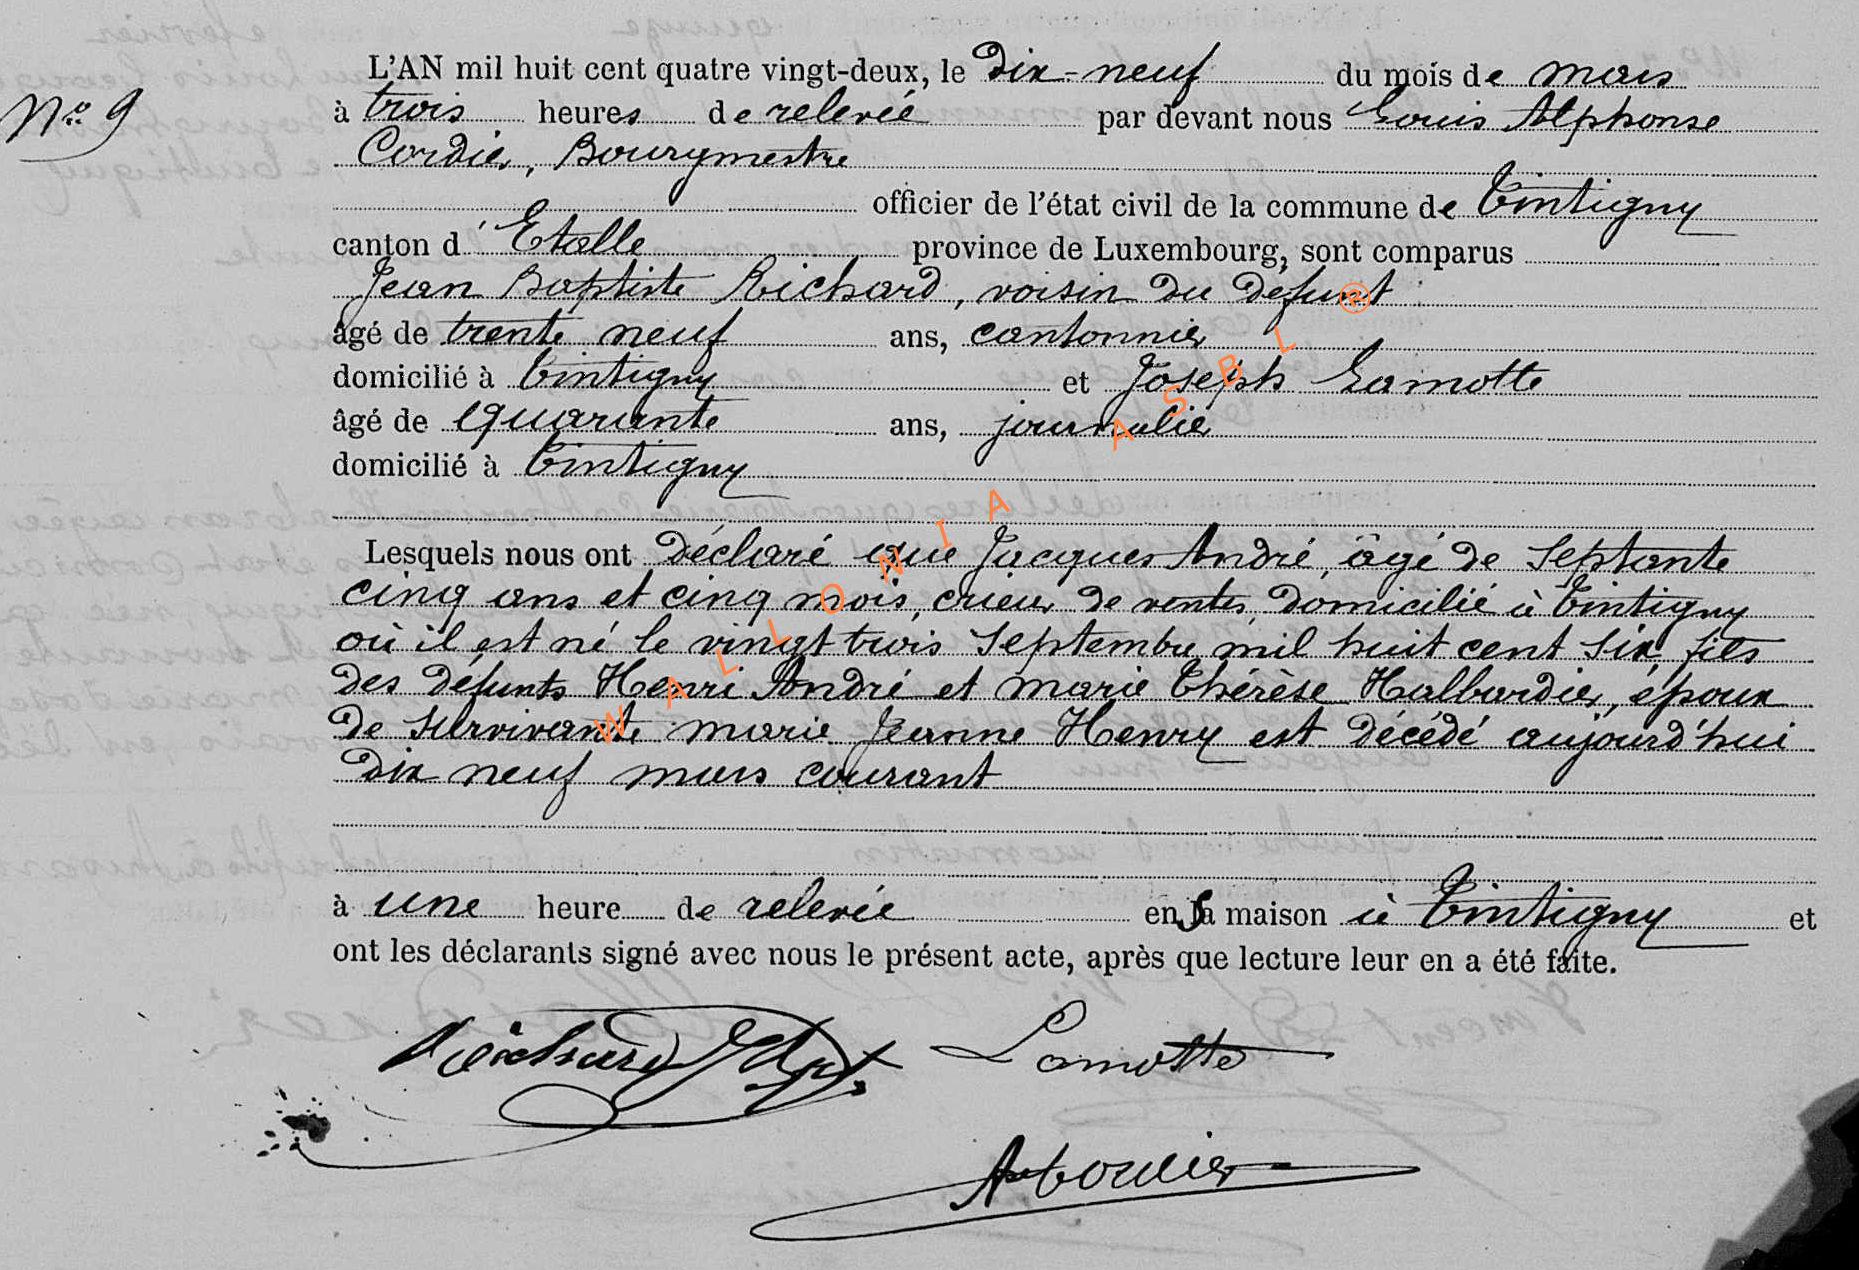 L'AN mil huit cent quatre vingt-deux, le Dix-neuf du mois de mars
N° 9
à trois heures de relevée par devant nous Louis Alphonse
Cordier, Bourgmestre
officier de l'état civil de la commune de Tintigny
canton d' Etalle province de Luxembourg, sont comparus
Jean Baptiste Richard, voisin du défunt
âgé de trente neuf ans, cantonnier
domicilié à Tintigny et Joseph Lamotte
âgé de quarante ans, journalier
domicilié à Tintigny
Lesquels nous ont déclaré que Jacques André, âgé de Septante
cinq ans et cinq mois, crieur de ventes, domicilié à Tintigny
où il est né le vingt trois Septembre mil huit cent six, fils
des défunts Henri André et marie Thérèse Halbardier, époux
de survivante marie Jeanne Henry est décédé aujourd'hui
Dix neuf mars courant
à une heure de relevée en sa maison à Tintigny et
ont les déclarants signé avec nous le présent acte, après que lecture leur en a été faite.
Richard JBpt Lamotte
WALLONIA ASBL ®